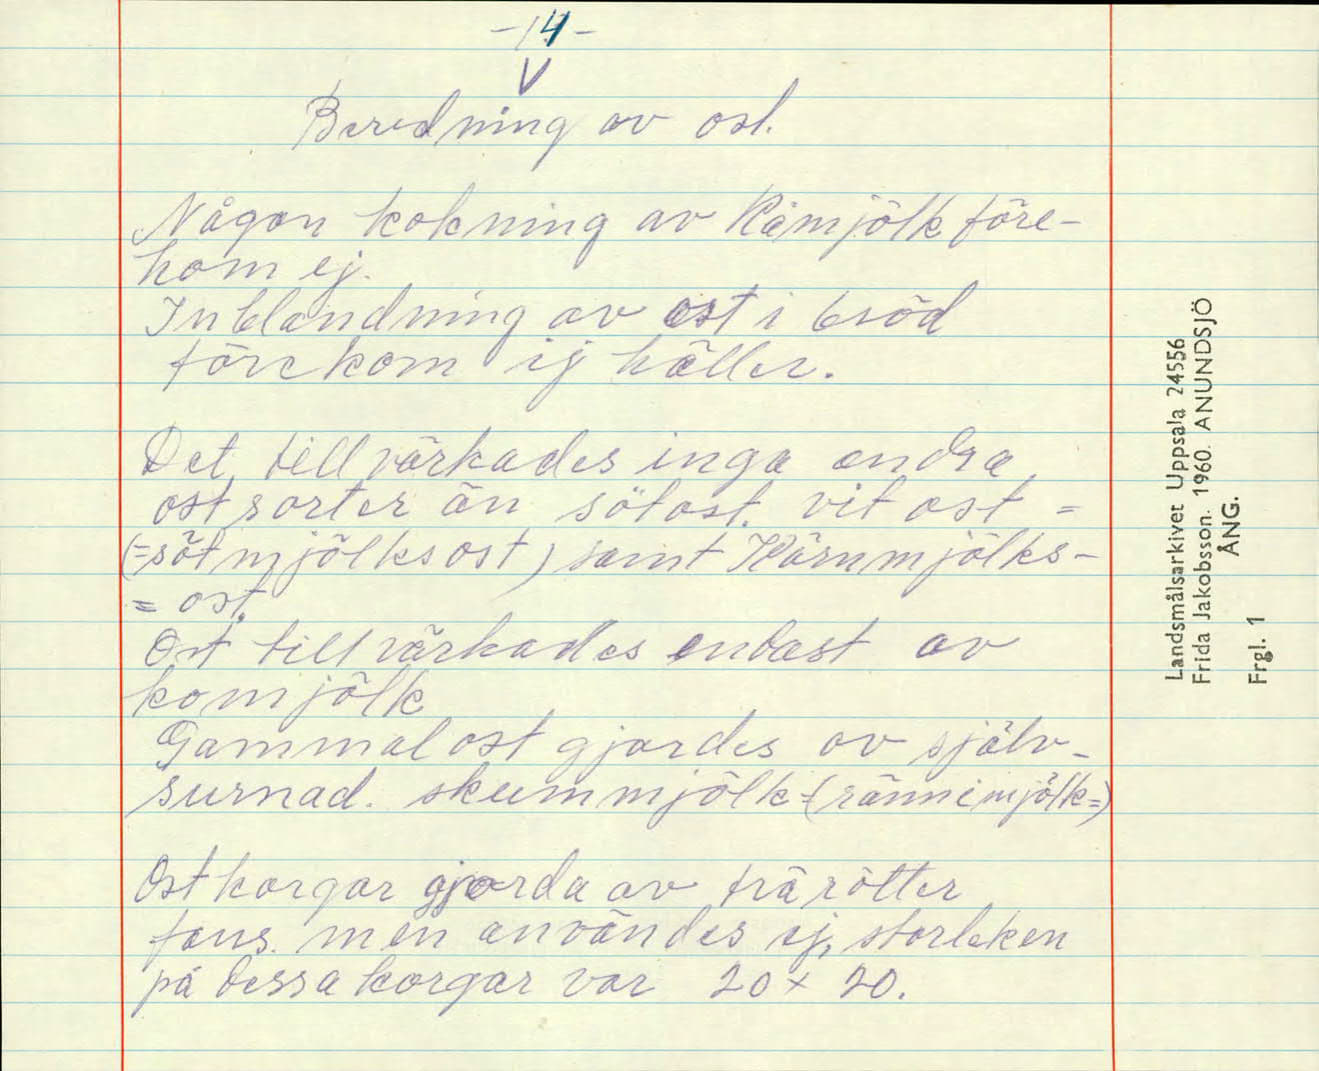 -14-
V
Beredning av ost.
Någon kokning av Råmjölk före-
kom ej.
Inblandning av ost i bröd
förekom ej häller.
Det tillvärkades inga andra
ostsorter än sötost. vit ost =
(=sötmjölksost) samt Kärnmjölks-
= ost.
Ost tillvärkades endast av
komjölk
Gammalost gjordes av själv-
surnad. skummjölk=(rännimjölk=)
Ostkorgar gjorda av trärötter
fans. men användes ej, storleken
på dessa korgar var 20 x 20.
Landsmålsarkivet Uppsala 24556
Frida Jakobsson. 1960. ANUNDSJÖ
ÅNG.
Frgl. 1